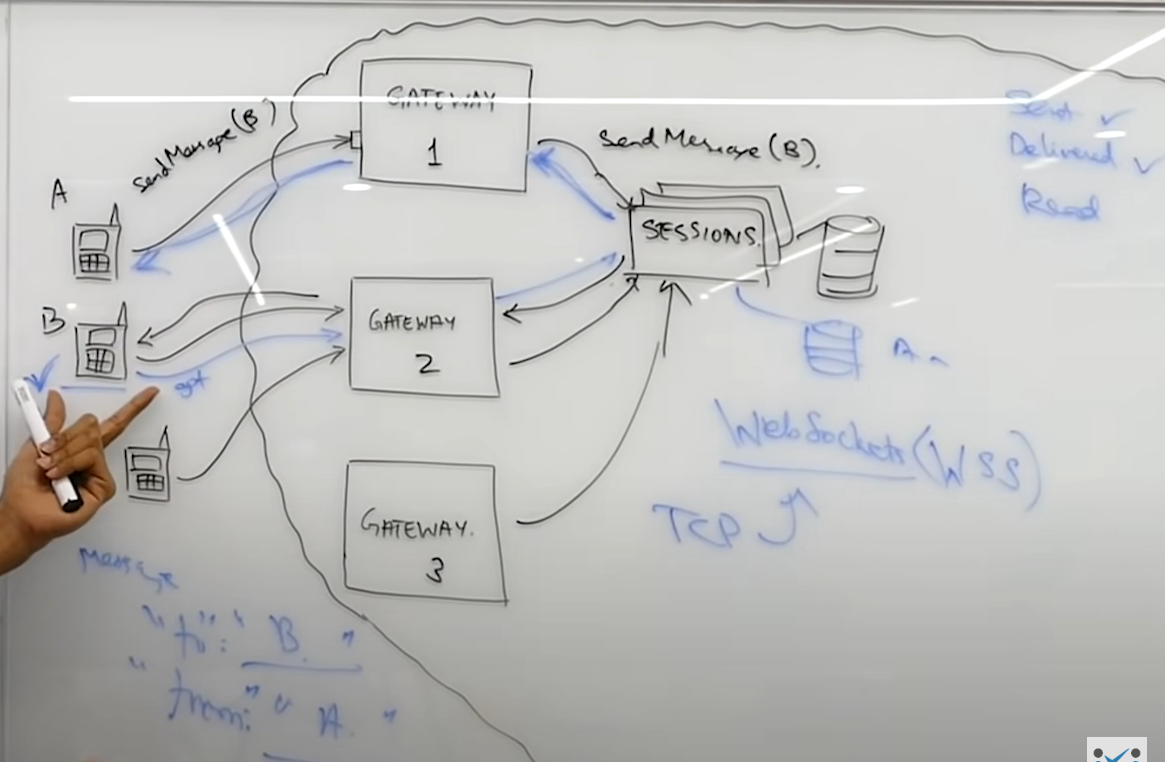 GATEWAY
1
SendMessage(B)
SendMessage(B).
Sent ✓
Delivered ✓
Read
A
SESSIONS.
B
GATEWAY
2
got
A
WebSockets (WSS)
TCP
GATEWAY.
3
Message
"to": "B."
"from": "A."